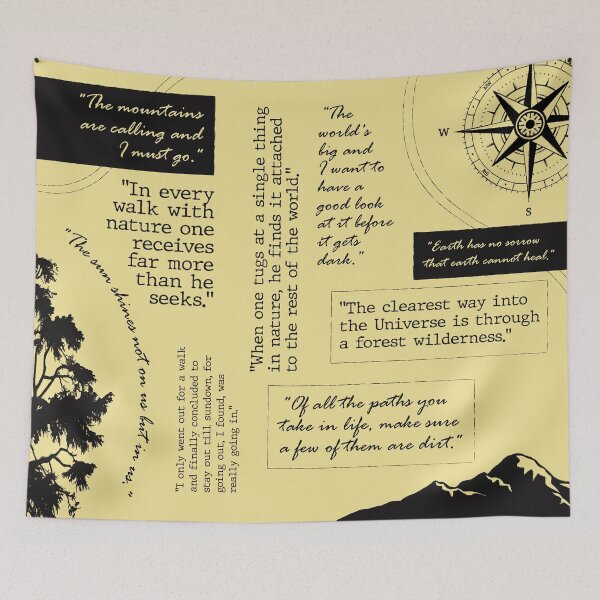 "The mountains
are calling and
I must go."
"In every
walk with
nature one
receives
far more
than he
seeks."
"The sun shines not on us but in us."
"I only went out for a walk
and finally concluded to
stay out till sundown, for
going out, I found, was
really going in."
"When one tugs at a single thing
in nature, he finds it attached
to the rest of the world."
"The
world's
big and
I want to
have a
good look
at it before
it gets
dark."
W
S
"Earth has no sorrow
that earth cannot heal."
"The clearest way into
the Universe is through
a forest wilderness."
"Of all the paths you
take in life, make sure
a few of them are dirt."